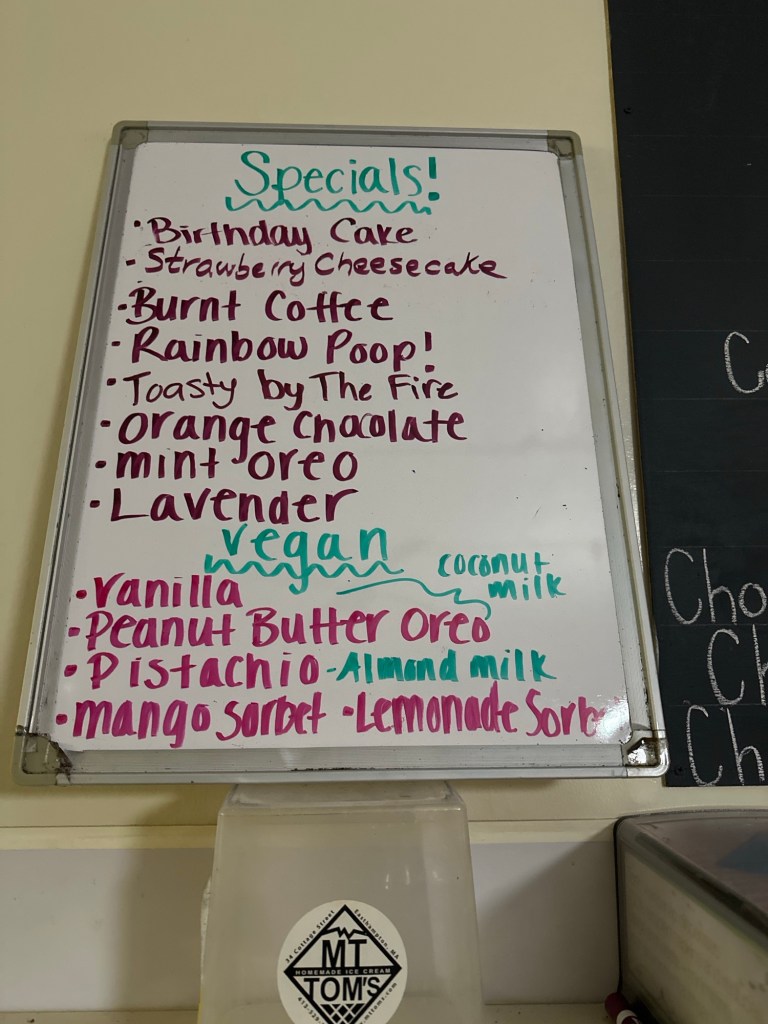 Specials!
• Birthday Cake
- Strawberry Cheesecake
• Burnt Coffee
• Rainbow Poop!
• Toasty by The Fire
• Orange Chocolate
• mint oreo
• Lavender
vegan
coconut
milk
• Vanilla
• Peanut Butter Oreo
• Pistachio - Almond milk
• mango sorbet • Lemonade Sorb
Cho
Ch
Ch
34 Cottage Street Easthampton, MA
MT
HOMEMADE ICE CREAM
TOM'S